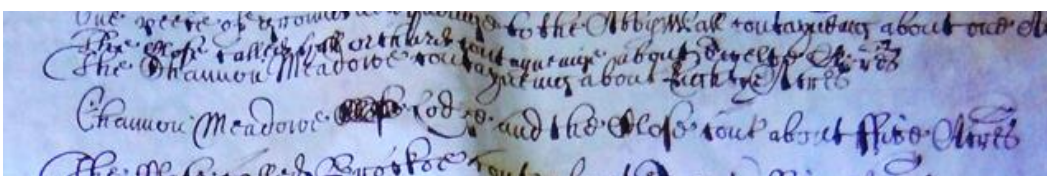 One peece of ground adioyning to the Abby Wall contayneing about one
The Close called Hall orchard contayneing about Twelve Acres
The Channon Meadowe contayneing about Eighty Acres
Channon Meadowe Lodge and the Close cont about ffive Acres
The called